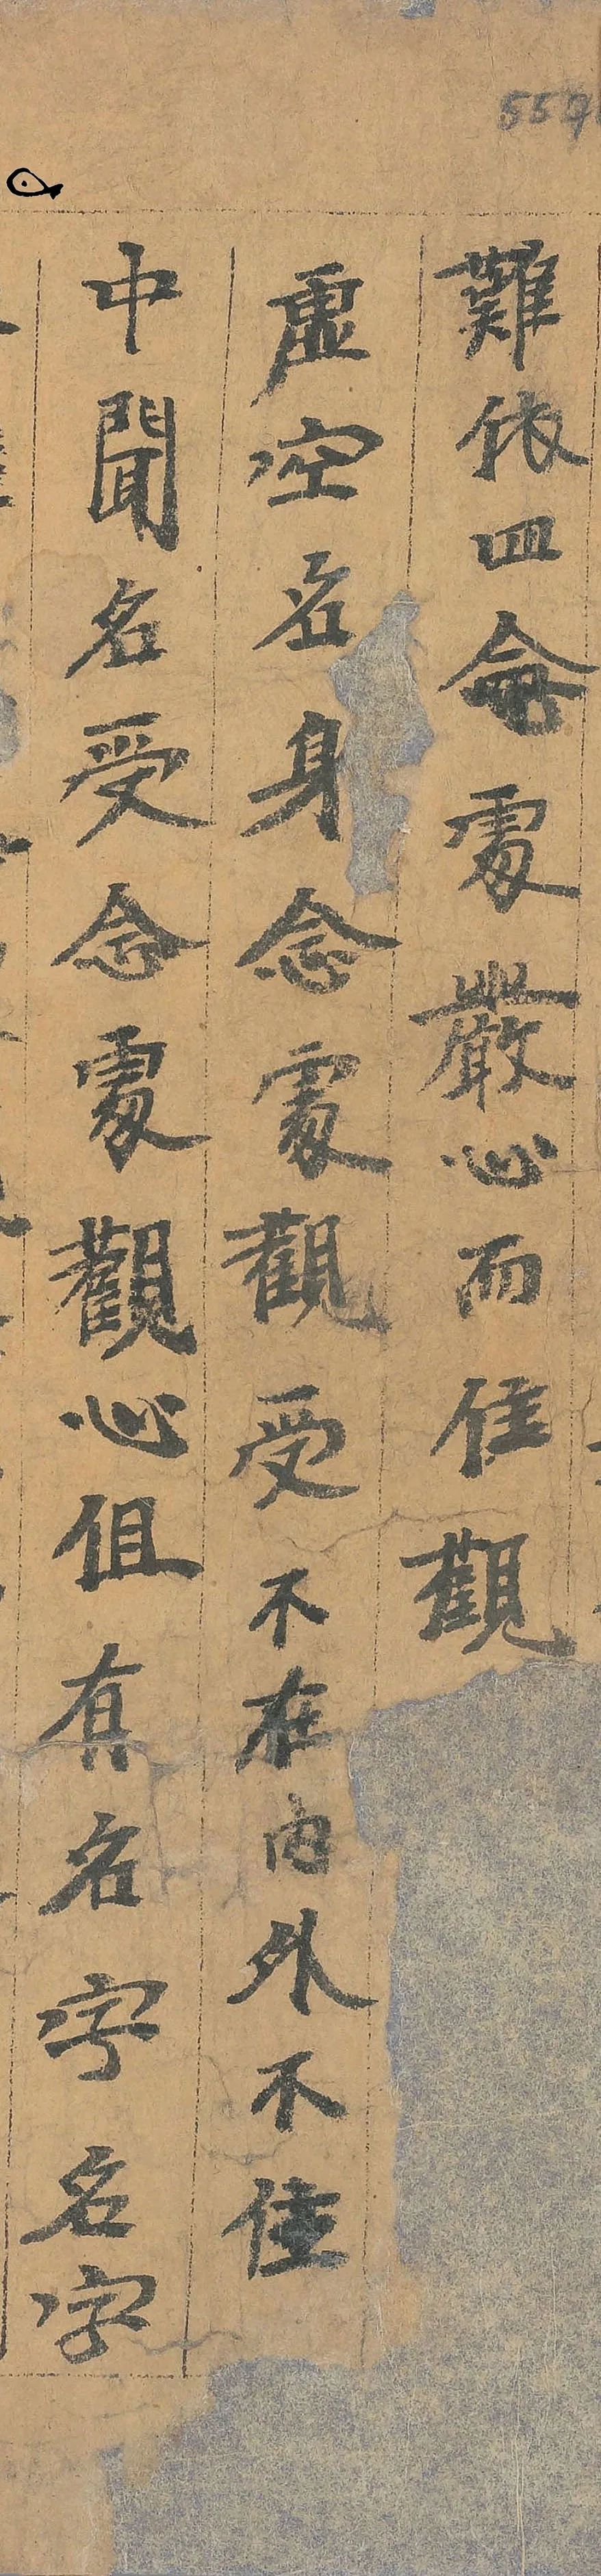 難依四念處嚴心而住觀
虛空名身念處觀受不在內外不住
中聞名受念處觀心但有名字名字